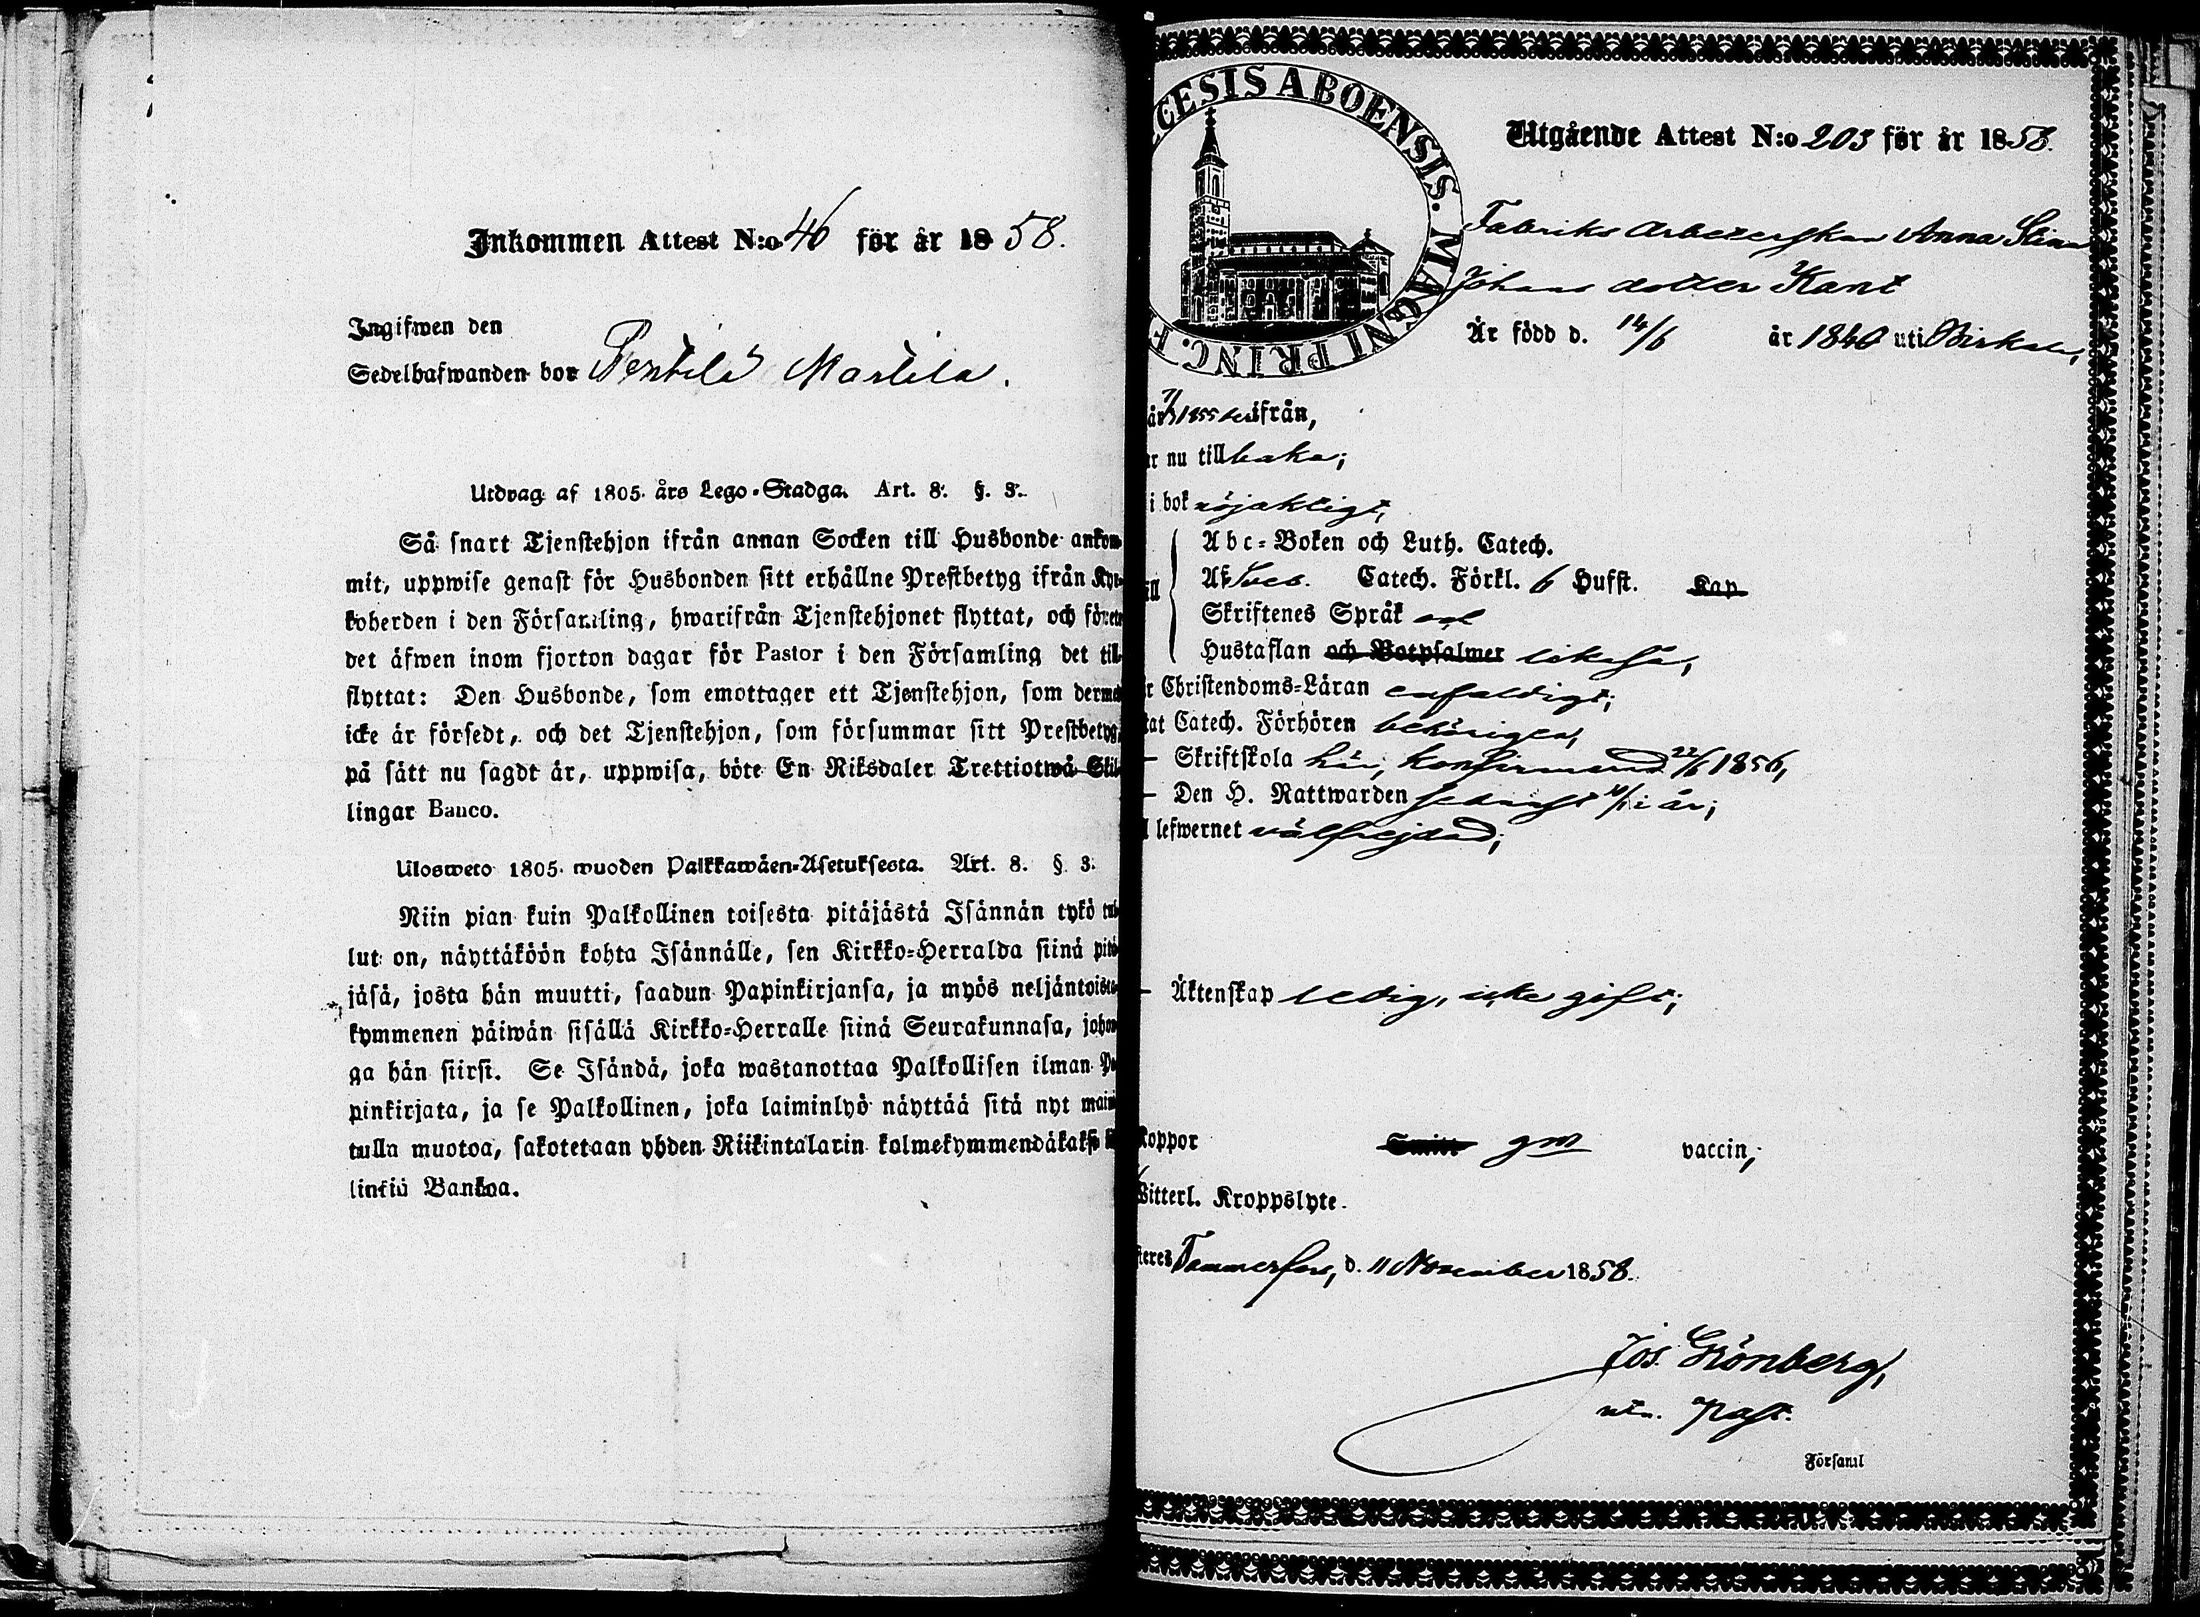 Inkommen Attest N:o 46 för år 1858.
Ingifwen den
Sedelhafwanden bor Pentilä Martila.
Utdrag af 1805 års Lego-Stadga. Art. 8. §. 3.
Så snart Tjenstehjon ifrån annan Socken till Husbonde ankom-
mit, uppwise genast för Husbonden sitt erhållne Prestbetyg ifrån Kyr-
koherden i den Församling, hwarifrån Tjenstehjonet flyttat, och förete
det äfwen inom fjorton dagar för Pastor i den Församling det till-
flyttat: Den Husbonde, som emottager ett Tjenstehjon, som dermed
icke är försedt, och det Tjenstehjon, som försummar sitt Prestbetyg,
på sätt nu sagdt är, uppwisa, böte En Riksdaler Trettiotwå Skil-
lingar Banco.
Ulosweto 1805 wuoden Palkkawäen-Asetuksesta. Art. 8. § 3.
Niin pian kuin Palkollinen toisesta pitäjästä Isännän tykö tul-
lut on, näyttäköön kohta Isännälle, sen Kirkko-Herralda siinä pitä-
jäsä, josta hän muutti, saadun Papinkirjansa, ja myös neljäntoista-
kymmenen päiwän sisällä Kirkko-Herralle siinä Seurakunnasa, johon-
ga hän siirsi. Se Isändä, joka wastanottaa Palkollisen ilman Pa-
pinkirjata, ja se Palkollinen, joka laiminlyö näyttää sitä nyt maini-
tulla muotoa, sakotetaan yhden Riikintalarin kolmekymmendäkaksi kil-
linkiä Bankoa.
CESIS ABOENSIS. MAGNI PRINC. F
Utgående Attest N:o 203 för år 1858.
Fabriks Arbeterskan Anna Stina
Johans dotter Kant
Är född d. 14/6 år 1840 uti Birkala,
1855 ifrån,
r nu tillbaka;
i bok nöjaktigt,
Abc-Boken och Luth. Catech.
Af Sveb. Catech. Förkl. 6 Hufst. Kap
Skriftenes Språk och
Hustaflan och Botpsalmer likaså,
r Christendoms-Läran enfaldigt;
tat Catech. Förhören behörigen,
— Skriftskola här, konfirmerad 22/6 1856,
— Den H. Nattwarden sednast i år;
l lefwernet välfrejdad;
— Äktenskap ledig, icke gift;
Koppor Smitt gm vaccin;
Witterl. Kroppslyte.
teres Tammerfors, d. 11 November 1858.
Jos. Grönberg,
Past.
Församl